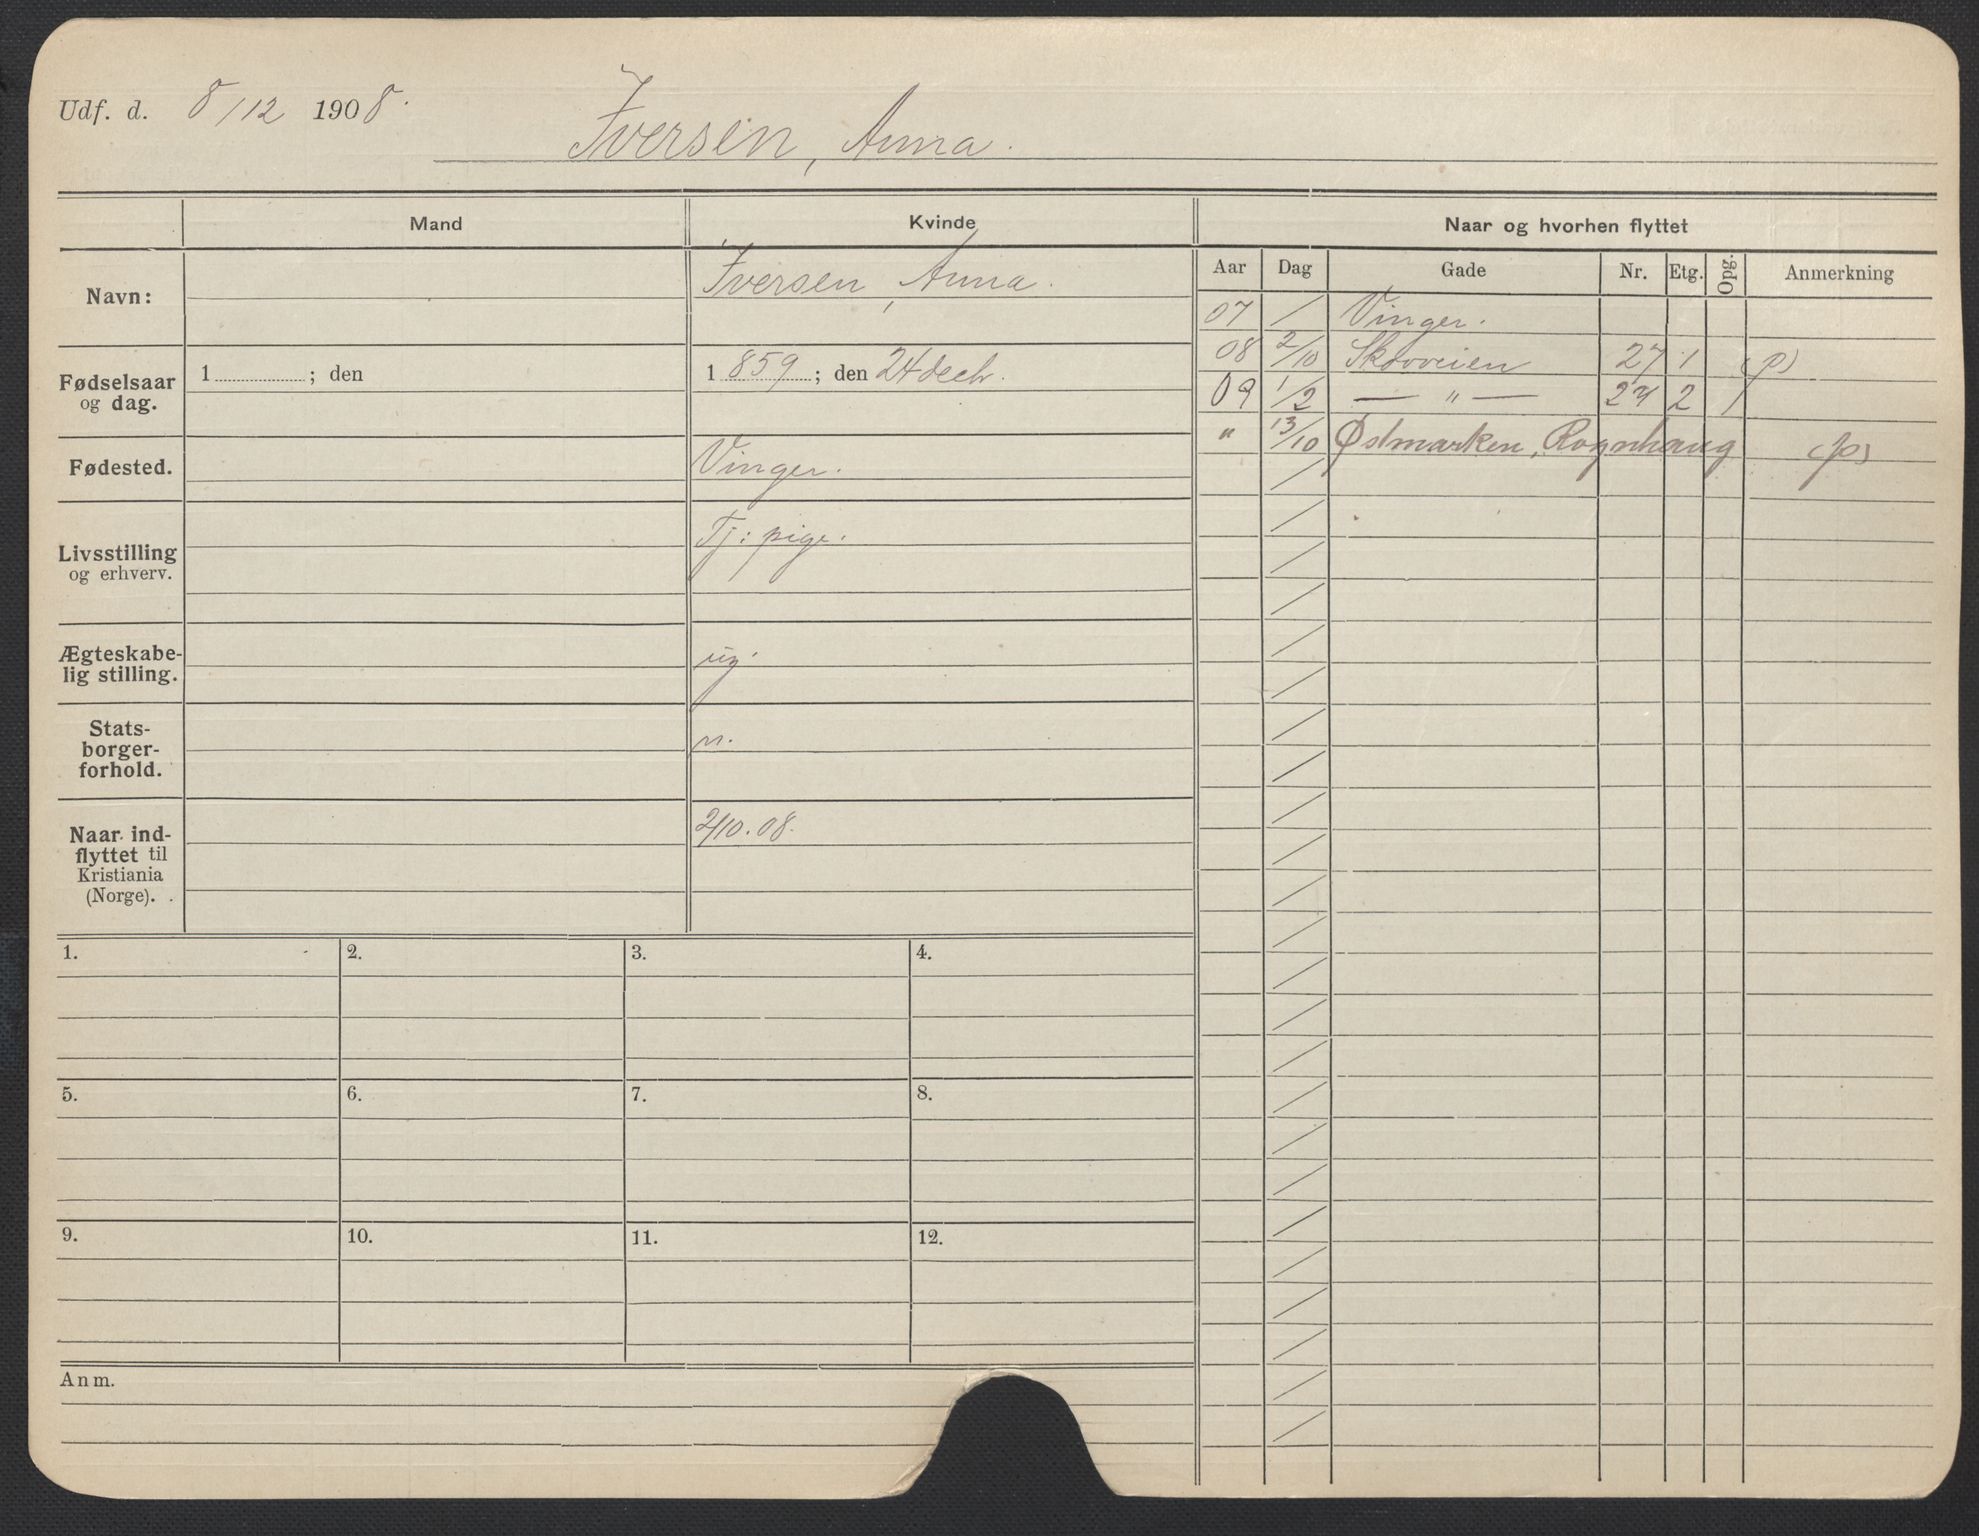 Udf. d. 8/12 1908.
Iversen, Anna.
Mand
Kvinde
Naar og hvorhen flyttet
Aar Dag Gade Nr. Etg. Opg. Anmerkning
Navn:
Iversen, Anna.
Fødselsaar
og dag.
1 ; den
1 859 ; den 24 decbr.
Fødested.
Vinger.
Livsstilling
og erhverv.
Tj: pige.
Ægteskabe-
lig stilling.
ug.
Stats-
borger-
forhold.
n.
Naar ind-
flyttet til
Kristiania
(Norge).
2/10.08.
07 / Vinger.
08 2/10 Skovveien 27 1 (p)
09 1/2 — " — 27 2 1
" 13/10 Østmarken, Rognhaug (p)
1. 2. 3. 4.
5. 6. 7. 8.
9. 10. 11. 12.
Anm.